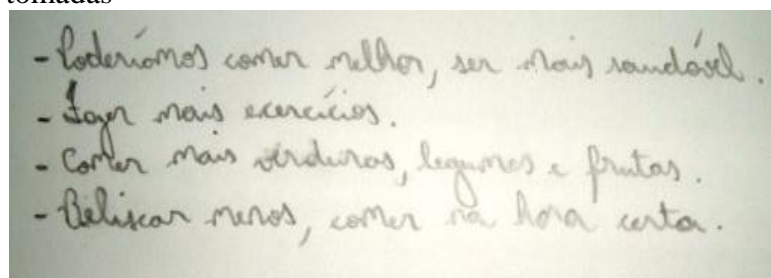 tomadas
- Poderíamos comer melhor, ser mais saudável.
- Fazer mais exercícios.
- Comer mais verduras, legumes e frutas.
- Beliscar menos, comer na hora certa.